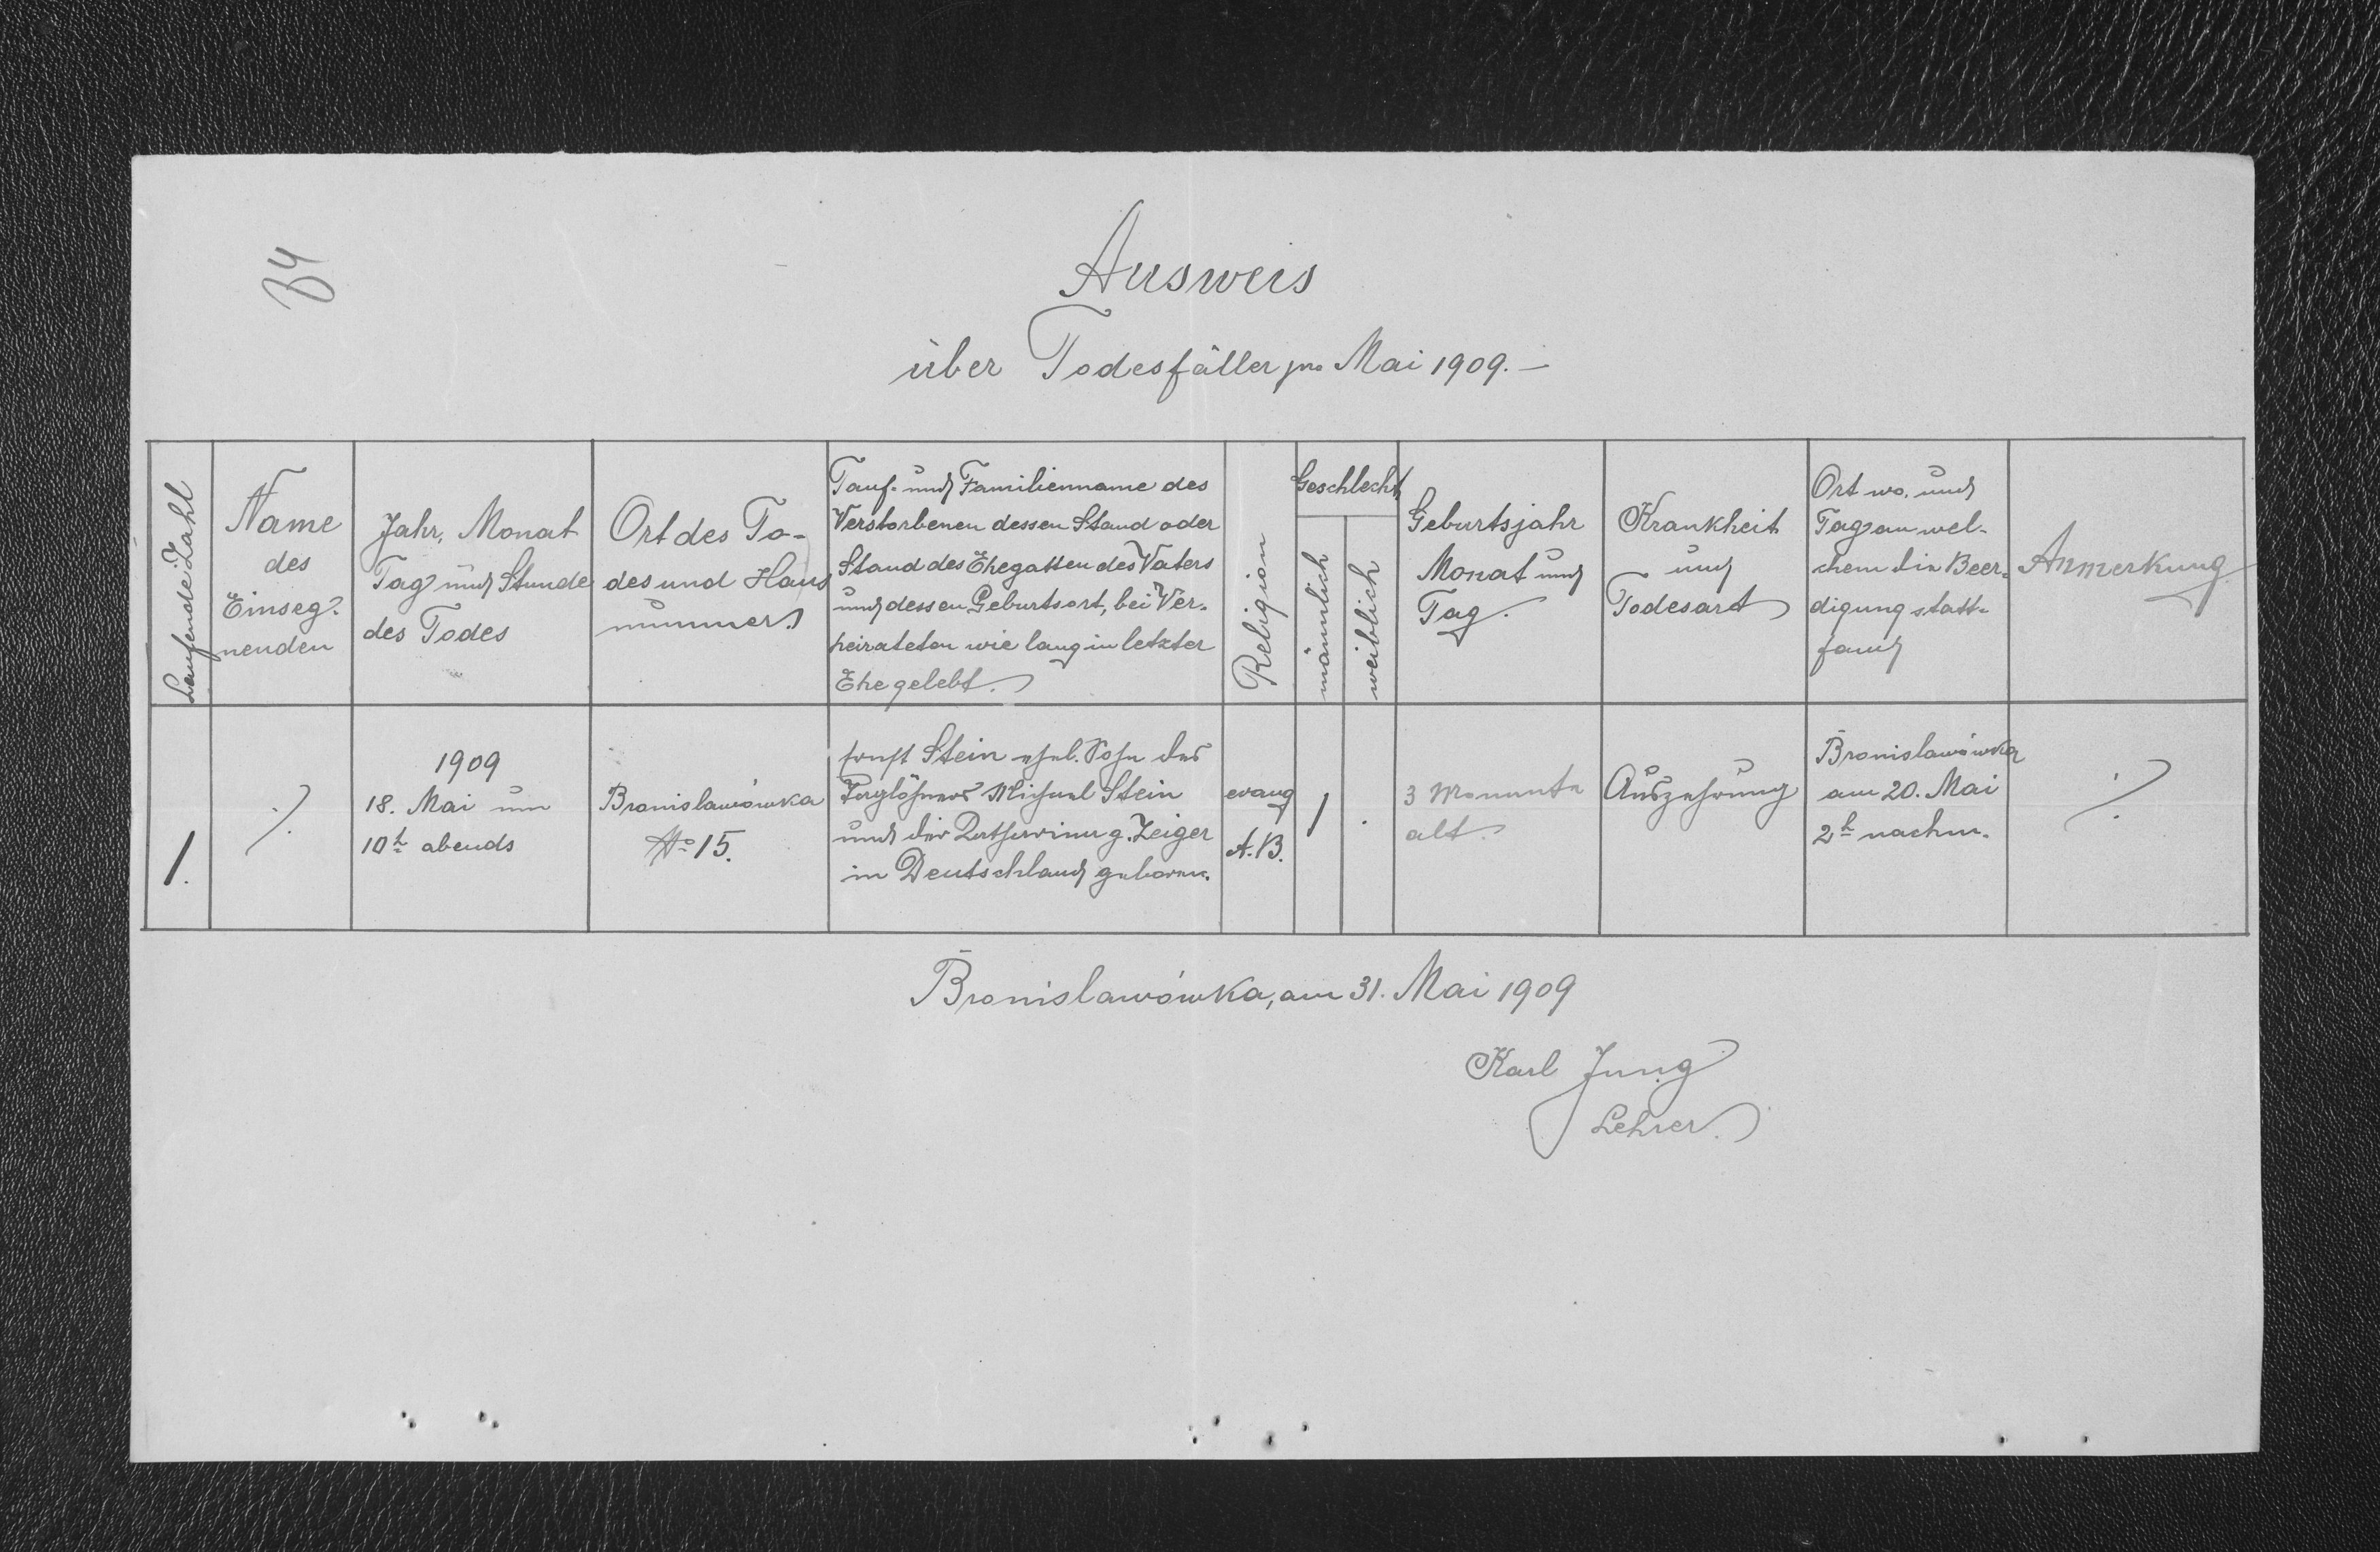 84
Ausweis
über Todesfäller pro Mai 1909. –
Laufende Zahl
Name
des
Einseg-
nenden
Jahr, Monat
Tag und Stunde
des Todes
Ort des To-
des und Haus
nummer.
Tauf- und Familienname des
Verstorbenen dessen Stand oder
Stand des Ehegatten des Vaters
und dessen Geburtsort, bei Ver-
heirateten wie lang in letzter
Ehe gelebt.
Religion
Geschlecht
männlich
weiblich
Geburtsjahr
Monat und
Tag.
Krankheit
und
Todesart
Ort wo, und
Tag an wel-
chem die Beer-
digung statt-
fand
Anmerkung
1.
./.
1909
18. Mai um
10h abends
Bronislawówka
No 15.
Ernst Stein ehel. Sohn des
Taglöhners Michael Stein
und der Katharina g. Zeiger
in Deutschland geboren.
evang
A.B.
1
.
3 Monate
alt.
Auszehrung
Bronislawówka
am 20. Mai
2h nachm.
./.
Bronislawówka, am 31. Mai 1909
Karl Jung
Lehrer.